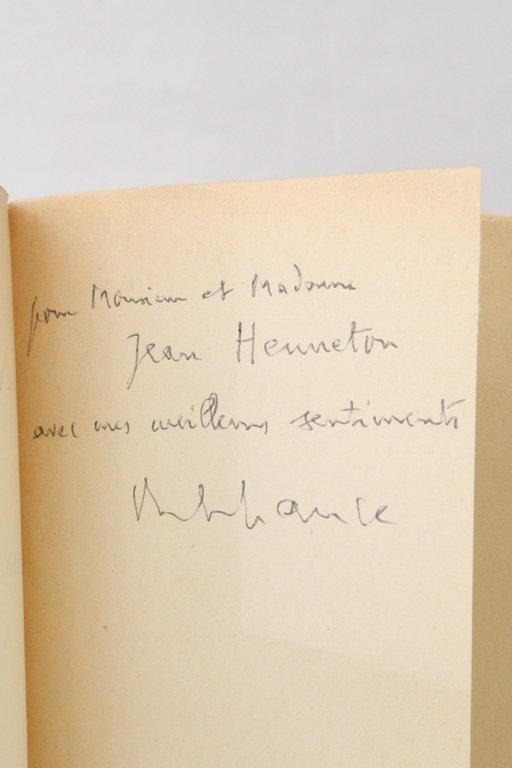 pour Monsieur et Madame
Jean Henneton
avec mes meilleurs sentiments